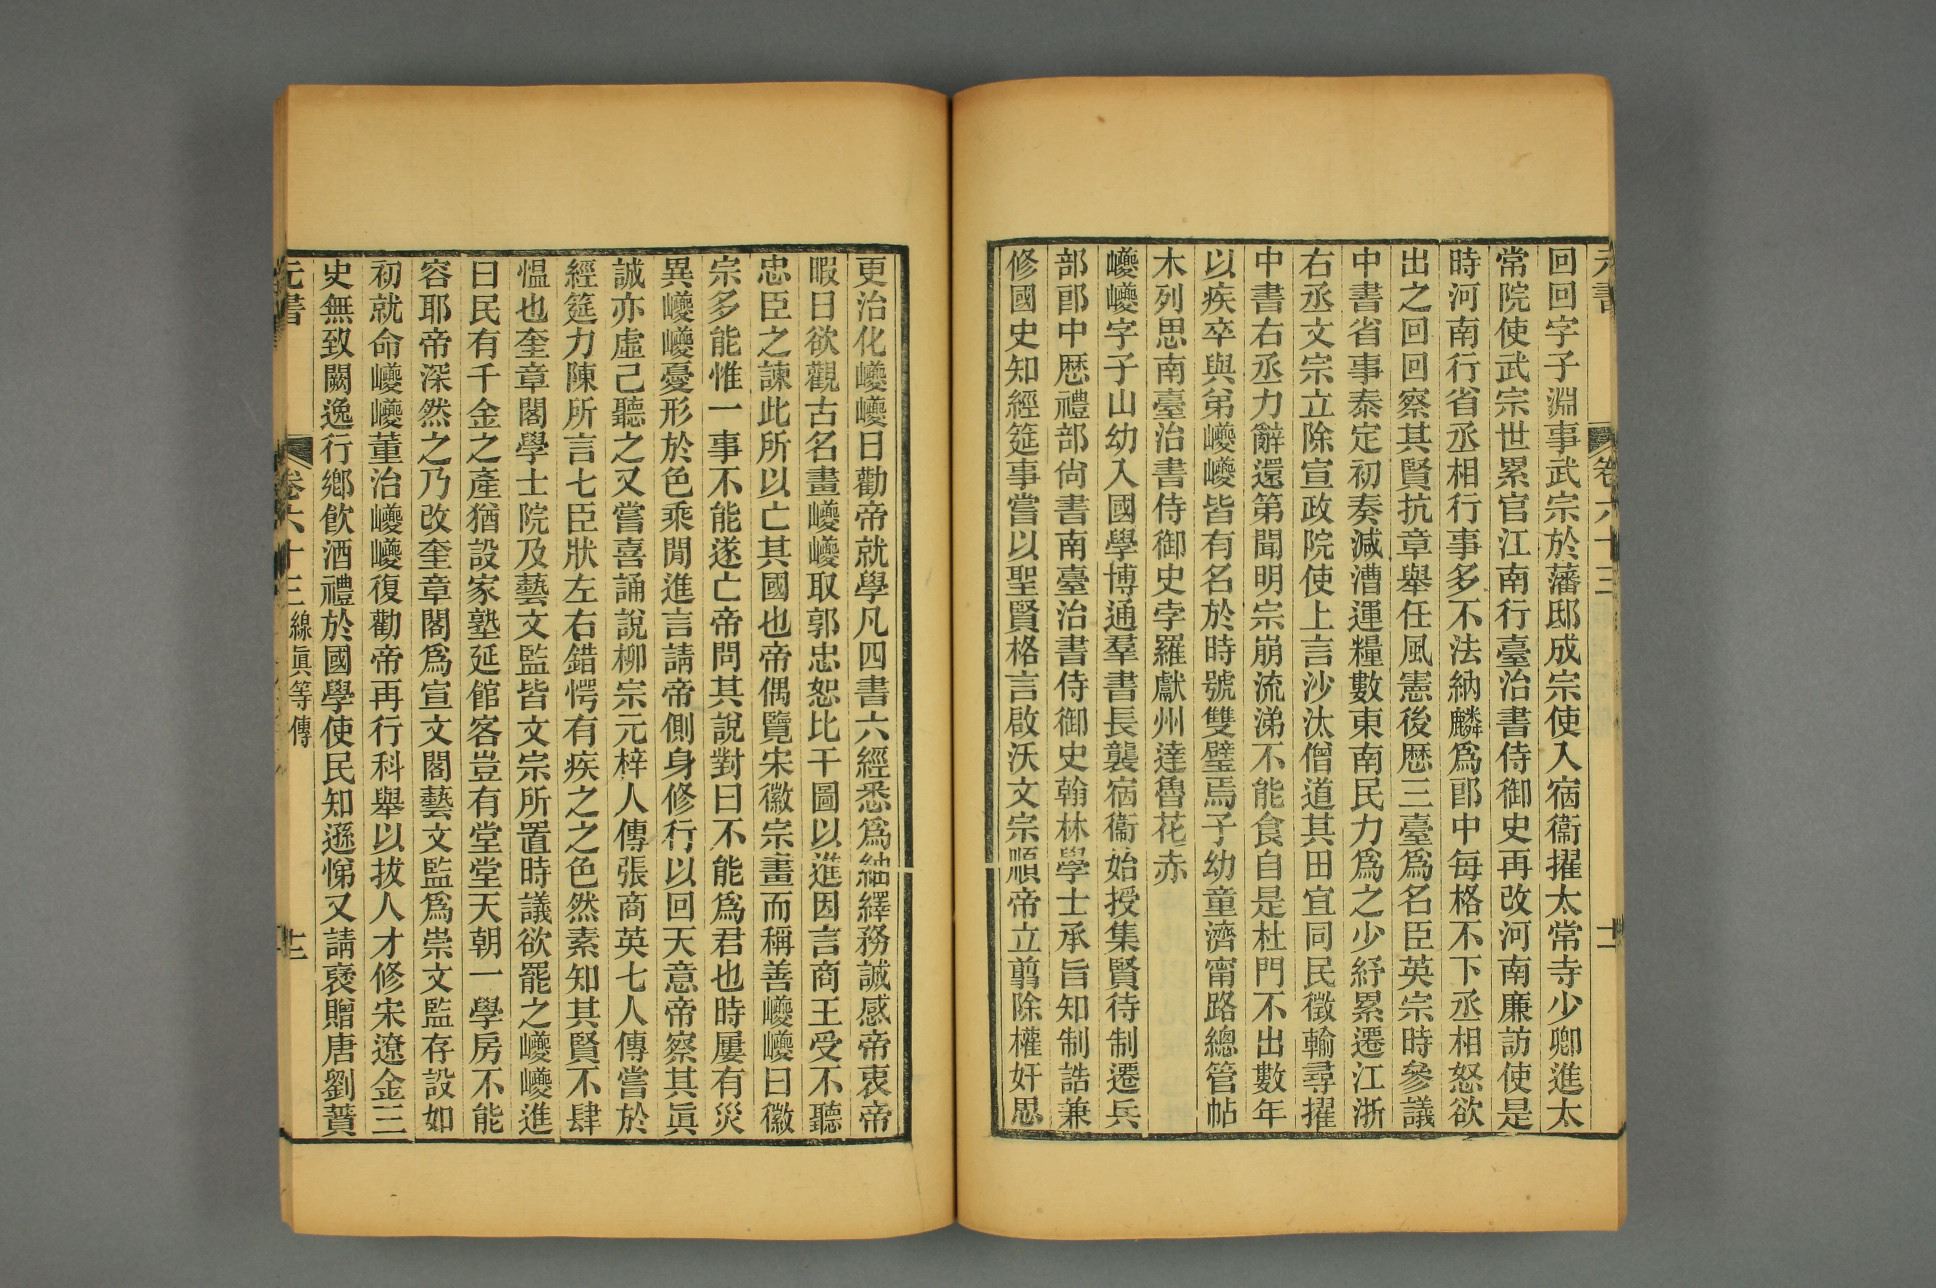 元書 卷六十三 十一
回回字子淵事武宗於藩邸成宗使入宿衞擢太常寺少卿進太
常院使武宗世累官江南行臺治書侍御史再改河南廉訪使是
時河南行省丞相行事多不法納麟爲郎中每格不下丞相怒欲
出之回回察其賢抗章舉任風憲後歷三臺爲名臣英宗時參議
中書省事泰定初奏減漕運糧數東南民力爲之少紓累遷江浙
右丞文宗立除宣政院使上言沙汰僧道其田宜同民徵輸尋擢
中書右丞力辭還第聞明宗崩流涕不能食自是杜門不出數年
以疾卒與弟巙巙皆有名於時號雙璧焉子幼童濟甯路總管帖
木列思南臺治書侍御史孛羅獻州達魯花赤
巙巙字子山幼入國學博通羣書長襲宿衞始授集賢待制遷兵
部郎中歷禮部尚書南臺治書侍御史翰林學士承旨知制誥兼
修國史知經筵事嘗以聖賢格言啟沃文宗順帝立翦除權奸思
更治化巙巙日勸帝就學凡四書六經悉爲紬繹務誠感帝衷帝
暇日欲觀古名畫巙巙取郭忠恕比干圖以進因言商王受不聽
忠臣之諫此所以亡其國也帝偶覽宋徽宗畫而稱善巙巙曰徽
宗多能惟一事不能遂亡帝問其說對曰不能爲君也時屢有災
異巙巙憂形於色乘閒進言請帝側身修行以回天意帝察其眞
誠亦虛己聽之又嘗喜誦說柳宗元梓人傳張商英七人傳嘗於
經筵力陳所言七臣狀左右錯愕有疾之之色然素知其賢不肆
慍也奎章閣學士院及藝文監皆文宗所置時議欲罷之巙巙進
曰民有千金之產猶設家塾延館客豈有堂堂天朝一學房不能
容耶帝深然之乃改奎章閣爲宣文閣藝文監爲崇文監存設如
初就命巙巙董治巙巙復勸帝再行科舉以拔人才修宋遼金三
史無致闕逸行鄉飲酒禮於國學使民知遜悌又請褒贈唐劉蕡
元書 卷六十三 線眞等傳 十二